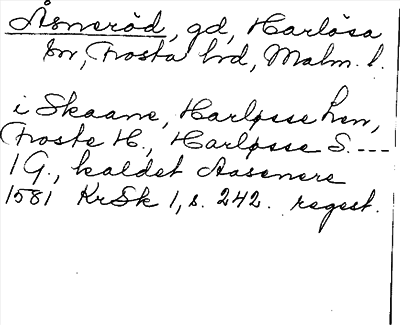 Åsneröd, gd, Harlösa
sn, Frosta hd, Malm. l.
i Skaane, Harløsse Len,
Froste H., Harløsse S. ---
1 G., kaldet Aasenere
1581 KrSk 1, s. 242. regest.